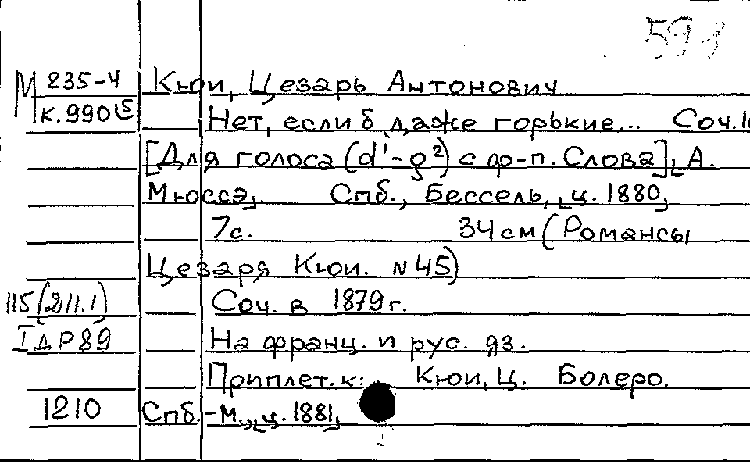 593
М 235-4 Кюи, Цезарь Антонович
К.990(5 Нет, если б даже горькие... Соч.1
[Для голоса (d'-g²) с ф-п. Слова], А.
Мюссэ, Спб., Бессель, [ц. 1880,
7с. 34см (Романсы
Цезаря Кюи. N45)
115(211.1) Соч. в 1879г.
IдР89 На франц. и рус. яз.
Приплет. к: Кюи, Ц. Болеро.
1210 Спб.-М., [ц. 1881,